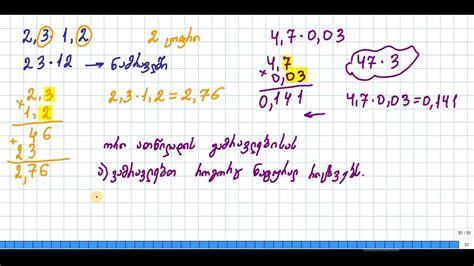 2,3 · 1,2
23·12 → ნამრავლში
2 ციფრი
× 2,3
1,2
+ 46
23
2,76
2,3 · 1,2 = 2,76
4,7 · 0,03
4,7
× 0,03
0,141
47 · 3
4,7 · 0,03 = 0,141
ორი ათწილადის გამრავლებისას
ა) ვამრავლებთ როგორც ნატურალ რიცხვებს.
51 / 51
51